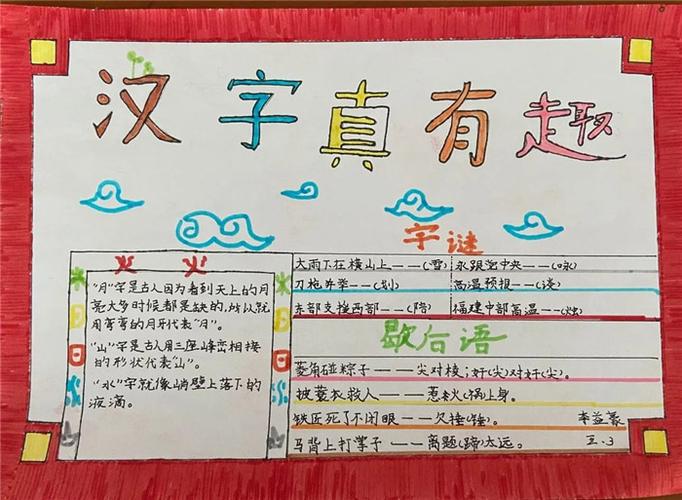 汉字真有趣
火 火
"月"字是古人因为看到天上的月
亮大多时候都是缺的,所以就
用弯弯的月牙代表"月"。
"山"字是古人用三座峰峦相接
的形状代表"山"。
"水"字就像峭壁上落下的
液滴。
日
日
字谜
大雨下在横山上——(雪) 永跟党中央——(咏)
刀枪并举——(划) 高温预报——(谈)
东部支援西部——(陪) 福建中部高温——(烛)
歇后语
菱角碰粽子——尖对棱;奸(尖)对奸(尖)。
披蓑衣救人——惹火(祸)上身。
铁匠死了不闭眼——欠捶(锤)。 李益豪
马背上打掌子——离题(蹄)太远。 五.3